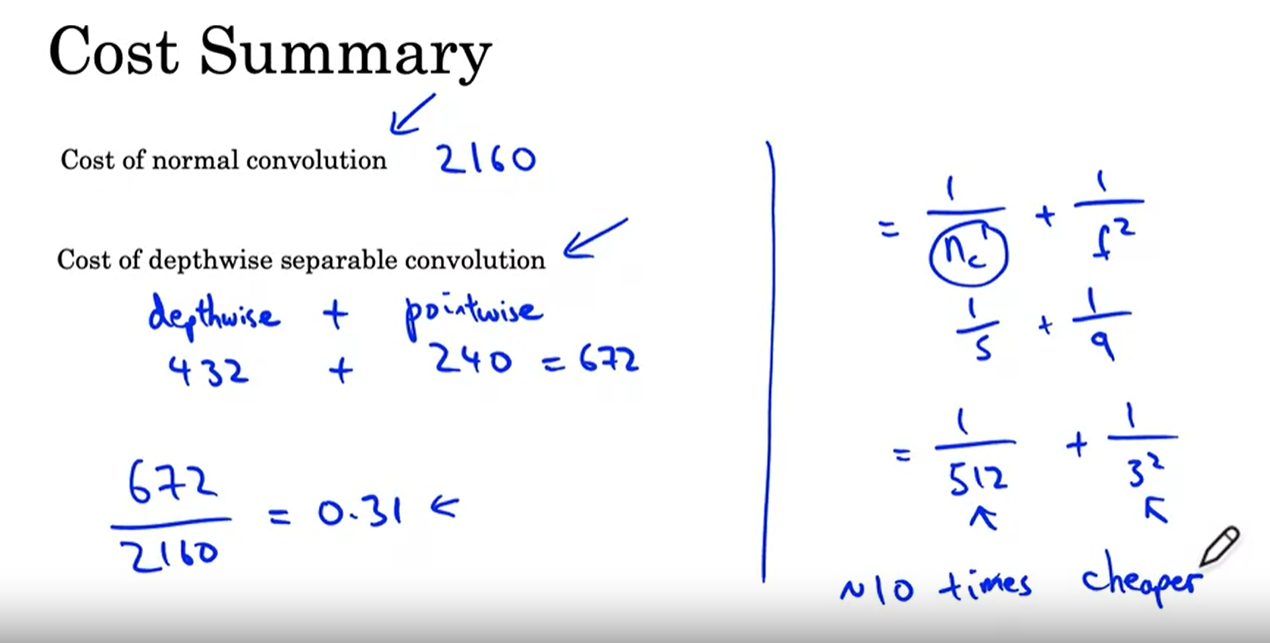 Cost Summary
Cost of normal convolution 2160
Cost of depthwise separable convolution
depthwise + pointwise
432 + 240 = 672
672
2160
= 0.31
= 1/nc' + 1/f²
1/5 + 1/9
= 1/512 + 1/3²
~10 times cheaper